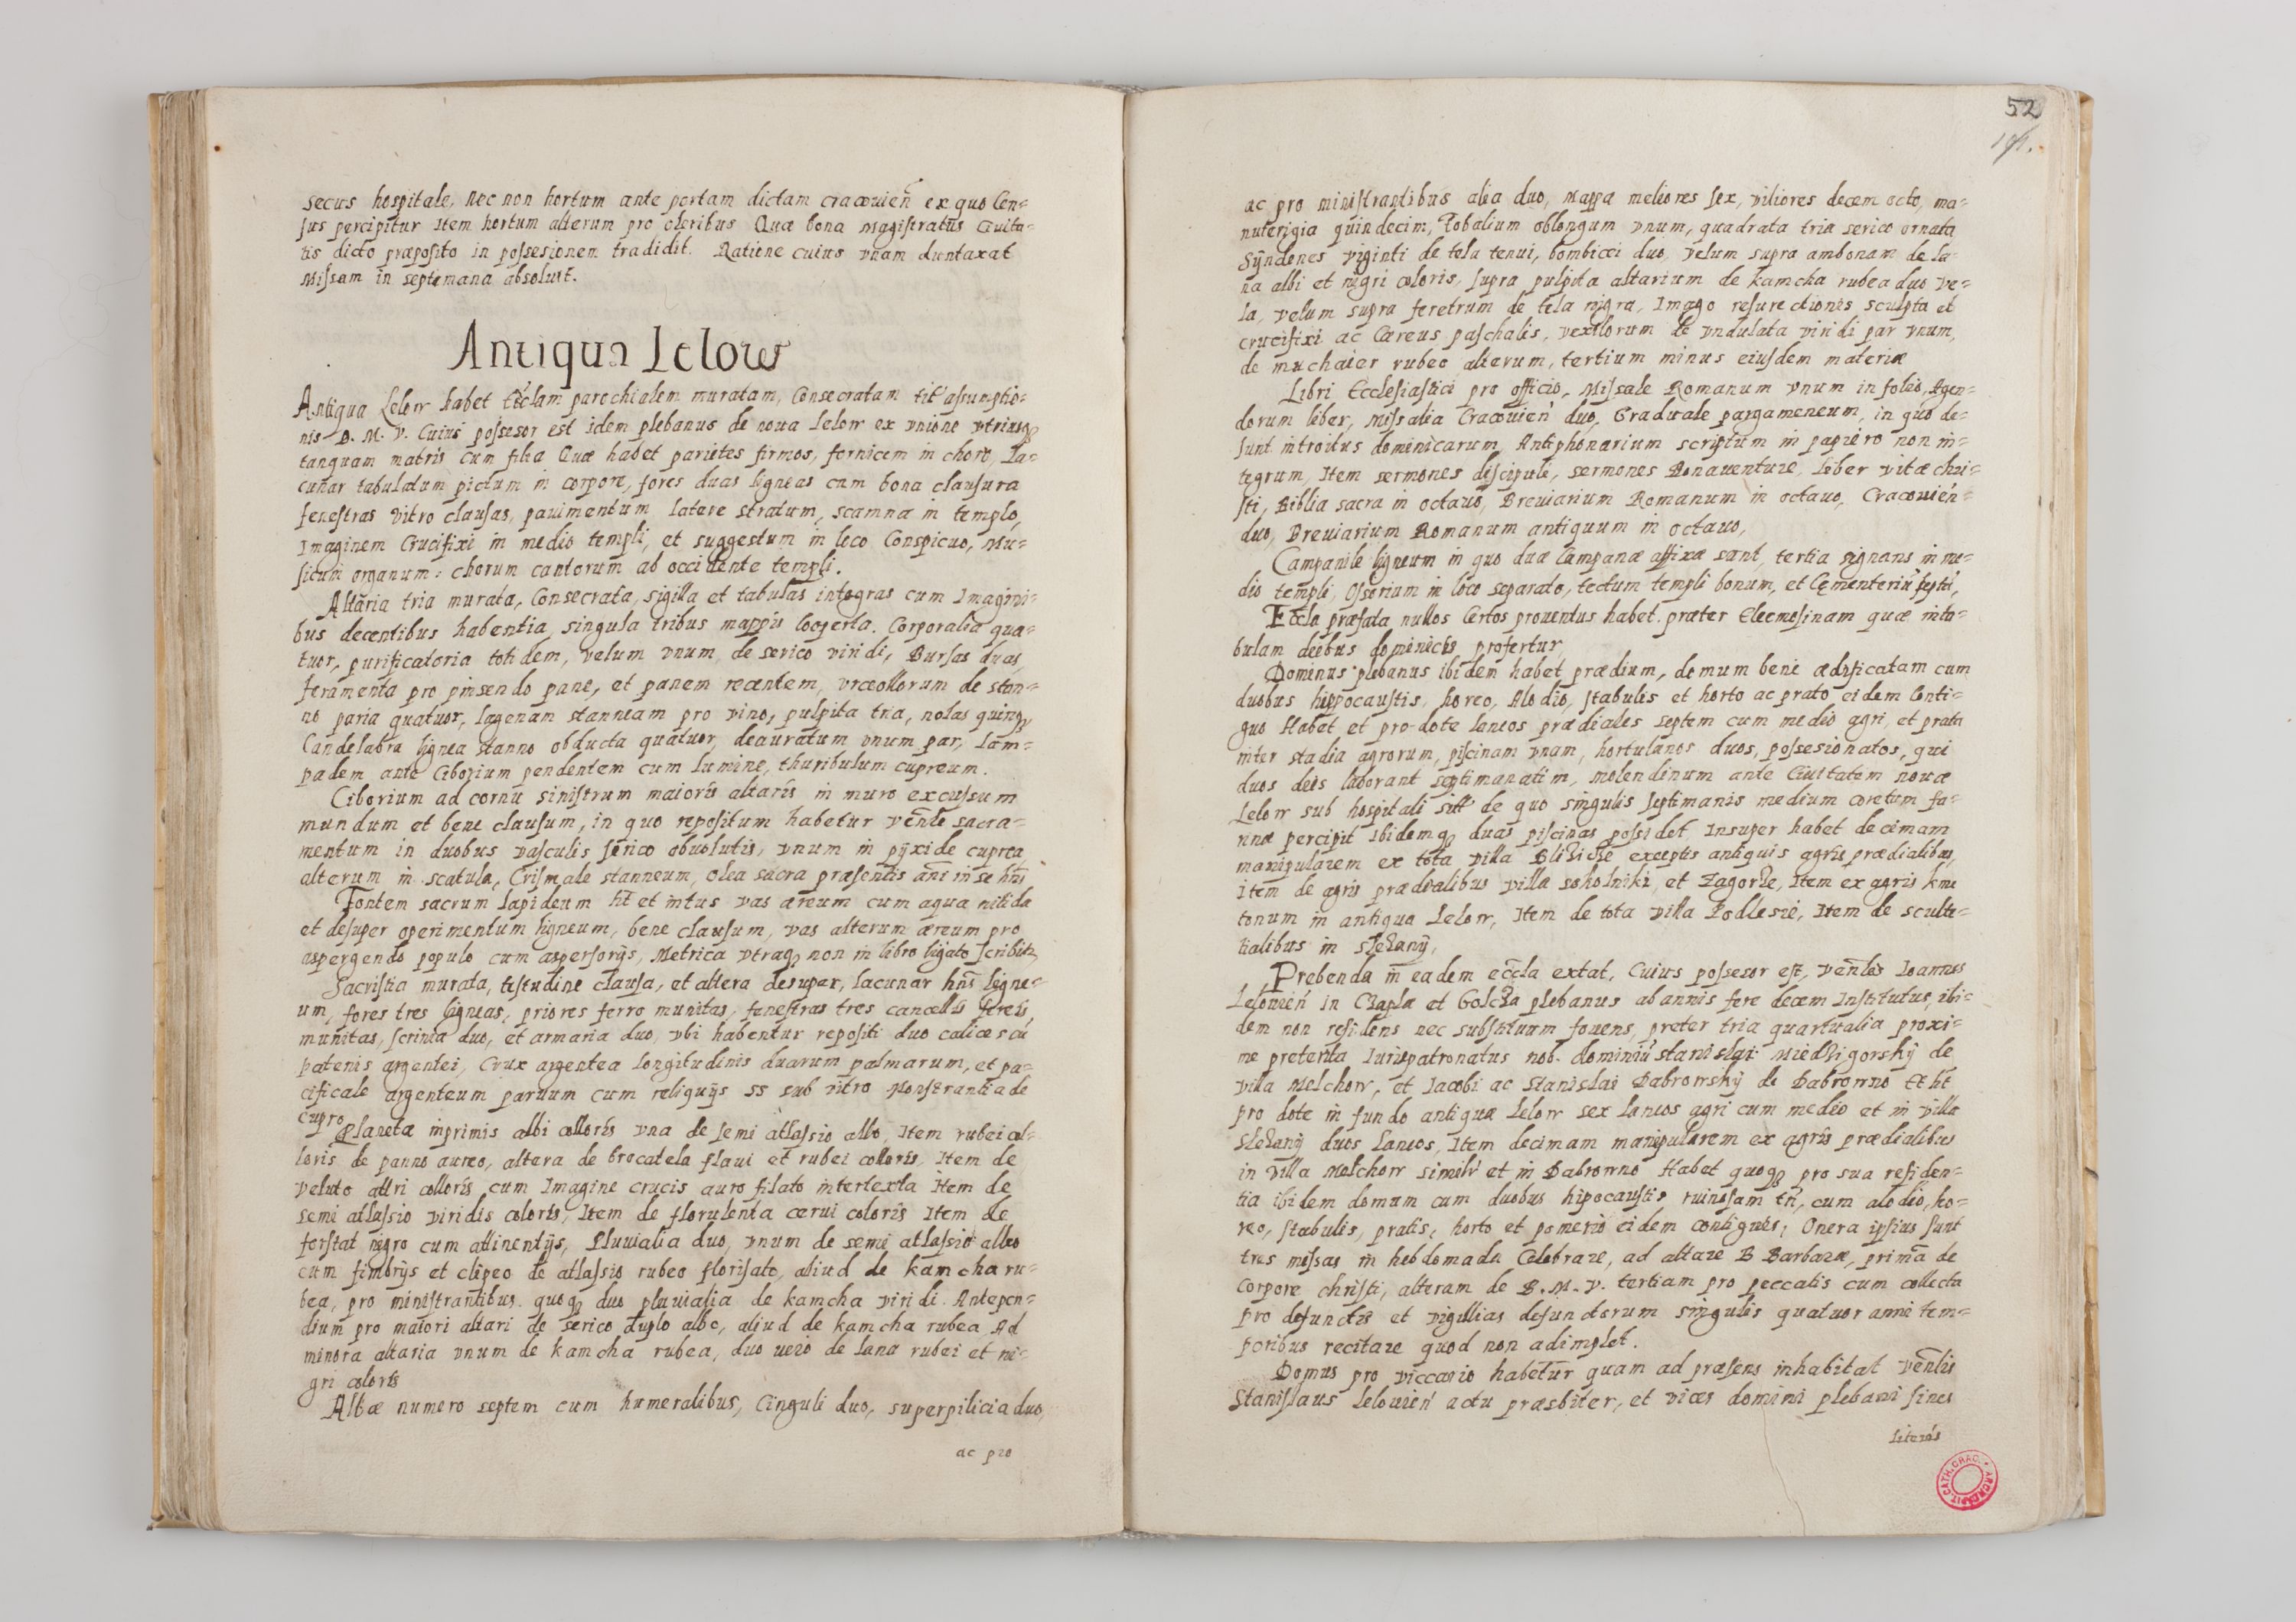 secus hospitale, nec non hortum ante portam dictam cracouień ex quo Cen=
sus percipitur Item hortum alterum pro oleribus Quæ bona Magistratus Ciuita=
tis dicto præposito in possesionem tradidit. Ratione cuius vnam duntaxat
Missam in septimana absoluit.
Antiqua Lelow
Antiqua Lelow habet Ecclam parochialem muratam, Consecratam tit assumptio=
nis B. M. V. Cuius possesor est idem plebanus de noua Lelow ex vnione vtriusq
tanquam matris cum filia Quæ habet parietes firmos, fornicem in choro, La=
cunar tabulatum pictum in corpore, fores duas ligneas cum bona clausura
fenestras vitro clausas, pauimentum latere stratum, scamna in templo,
Imaginem Crucifixi in medio templi, et suggestum in loco Conspicuo, Mu=
sicum organum: chorum cantorum ab occidente templi.
Altaria tria murata, Consecrata, sigilla et tabulas integras cum Imagini=
bus decentibus habentia, singula tribus mappis cooperta. Corporalia qua=
tuor, purificatoria totidem, velum vnum de serico viridi, Bursas duas,
feramenta pro pinsendo pane, et panem recentem, vrceollorum de stan=
no paria quatuor, lagenam stanneam pro vino, pulpita tria, nolas quinq
Candelabra lignea stanno obducta quatuor, deauratum vnum par, Lam=
padem ante Ciborium pendentem cum lumine, thuribulum cupreum.
Ciborium ad cornu sinistrum maioris altaris in muro excussum
mundum et bene clausum, in quo repositum habetur venle sacra=
mentum in duobus vasculis serico obuolutis, vnum in pyxide cuprea
alterum in scatula, Crismale stanneum, olea sacra præsentis anni in se hns
Fontem sacrum lapideum ht et intus vas æreum cum aqua nitida
et desuper operimentum ligneum, bene clausum, vas alterum æreum pro
aspergendo populo cum aspersorijs, Metrica vtraq non in libro ligato scribit
Sacristia murata, testudine clausa, et altera desuper, lacunar hns ligne=
um, fores tres ligneas, priores ferro munitas, fenestras tres cancellis ferreis
munitas, scrinia duo, et armaria duo, vbi habentur repositi duo calices cu
patenis argentei, Crux argentea longitudinis duarum palmarum, et pa=
cificale argenteum paruum cum reliquijs SS sub vitro Monstrantia de
cupro
Planetæ inprimis albi colloris vna de semi atlassio albo, Item rubei col=
loris de panno aureo, altera de brocatela flaui et rubei colloris, Item de
veluto attri colloris cum Imagine crucis auro filato intertexta Item de
semi atlassio viridis coloris, Item de florulenta cærui coloris Item de
forstat nigro cum attinentijs, Pluuialia duo, vnum de semi atlassio albo
cum fimbrijs et clipeo de atlassio rubeo florisato, aliud de kamcha ru=
bea, pro ministrantibus quoq duo pluuialia de kamcha viridi. Antepen=
dium pro maiori altari de serico duplo albo, aliud de kamcha rubea Ad
minora altaria vnum de kamcha rubea, duo uero de lana rubei et ni=
gri coloris
Albæ numero septem cum humeralibus, Cinguli duo, superpilicia duo,
ac pro
52
ac pro ministrantibus alia duo, Mappæ meliores sex, viliores decem octo, ma=
nuterigia quindecim, Fobalium oblongum vnum, quadrata tria serico ornata
Syndones viginti de tela tenui, bombicei duo, velum supra ambonam de la=
na albi et nigri coloris, supra pulpita altarium de kamcha rubea duo ve=
la, velum supra feretrum de tela nigra, Imago resurectionis sculpta et
crucifixi ac Cæreus paschalis, vexillorum de vndulata viridi par vnum,
de muchaier rubeo alterum, tertium minus eiusdem materiæ
Libri Ecclesiastici pro officio, Missale Romanum vnum in folio, Agen=
dorum liber, Missalia Cracouień duo, Graduale pargameneum, in quo de=
sunt introitus dominicarum, Antiphonarium scriptum in papiero non in=
tegrum, Item sermones discipuli, sermones Bonauenturæ, Liber vitæ chri=
sti, Biblia sacra in octauo, Breuiarium Romanum in octauo, Cracouień=
duo, Breuiarium Romanum antiquum in octauo,
Campanile ligneum in quo duæ Campanæ affixæ sunt, tertia signans in me=
dio templi, Ossorium in loco separato, tectum templi bonum, et Cementeriu septu,
Eccla præfata nullos Certos prouentus habet præter Eleemosinam quæ in ta=
bulam diebus dominicis profertur,
Dominus plebanus ibidem habet prædium, domum bene ædificatam cum
duobus hippocaustis, horeo, Alodio, stabulis et horto ac prato eidem Conti=
guo Habet et pro dote laneos prædiales septem cum medio agri, et prata
inter stadia agrorum, piscinam vnam, hortulanos duos, possesionatos, qui
duos dies laborant septimanatim, molendinum ante Ciuitatem nouæ
Lelow sub hospitali sitt de quo singulis septimanis medium coretum fa=
rinæ percipit Ibidemq duas piscinas possidet Insuper habet decimam
manipularem ex tota villa Blizicze exceptis antiquis agris prædialibus,
Item de agris prædialibus villa Sokolniki, et Zagorze, Item ex agris kme
tonum in antiqua Lelow, Item de tota villa Podlesie, Item de sculte=
tialibus in slezany,
Prebenda in eadem eccla extat, Cuius possesor est, venlis Ioannes
Lelouień in Czaplæ et Golcza plebanus ab annis fere decem Institutus, ibi=
dem non residens nec substituum fouens, preter tria quartualia proxi=
me preterita Iurispatronatus nob. dominiu stanislai Niedzigorsky de
villa Melchow, et Iacobi ac Stanislai Dabrowsky de Dabrowno Et ht
pro dote in fundo antiquæ Lelow sex laneos agri cum medio et in villa
Slezany duos laneos, Item decimam manipularem ex agris prædialibus
in villa Melchow simili et in Dabrowno Habet quoq pro sua residen=
tia ibidem domum cum duobus hipocaustis ruinosam tn, cum alodio, ho=
reo, stabulis, pratis, horto et pomerio eidem contiguis, Onera ipsius sunt
tres missas in hebdomada Celebrare, ad altare B Barbaræ, prima de
Corpore christi, alteram de B. M. V. tertiam pro peccatis cum collecta
pro defunctis et vigillias defunctorum singulis quatuor anni tem=
poribus recitare quod non adimplet.
Domus pro viccario habetur quam ad præsens inhabitat venlis
Stanislaus Lelouień actu præsbiter, et vices domini plebani sines
literis